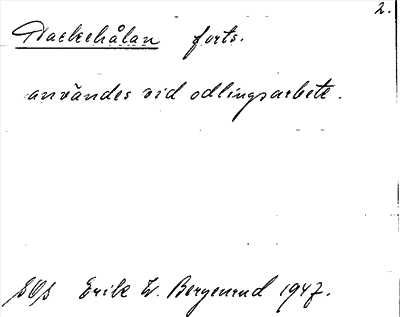 2.
Dackehålan forts.
användes vid odlingsarbete.
Erik W. Bergenrud 1947.